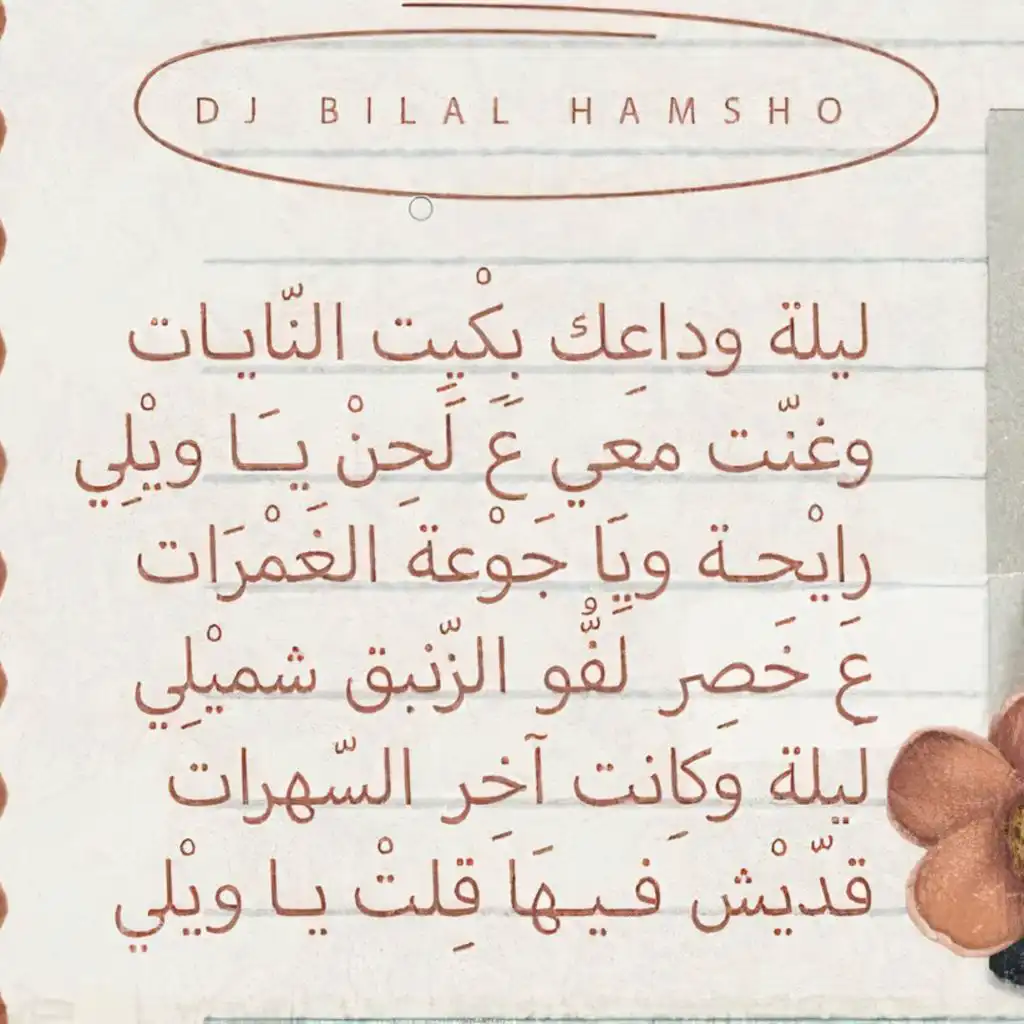 DJ BILAL HAMSHO
ليلة وداعِك بِكْيِت النّايات
وغنّت معي عَ لَحِنْ يَا ويْلِي
رايْحة ويَا جَوْعة الغَمْرَات
عَ خَصِر لَفُّو الزّنبق شميْلِي
ليلة وكَانت آخَر السّهرات
قدّيْش فيهَا قِلتْ يا ويْلي